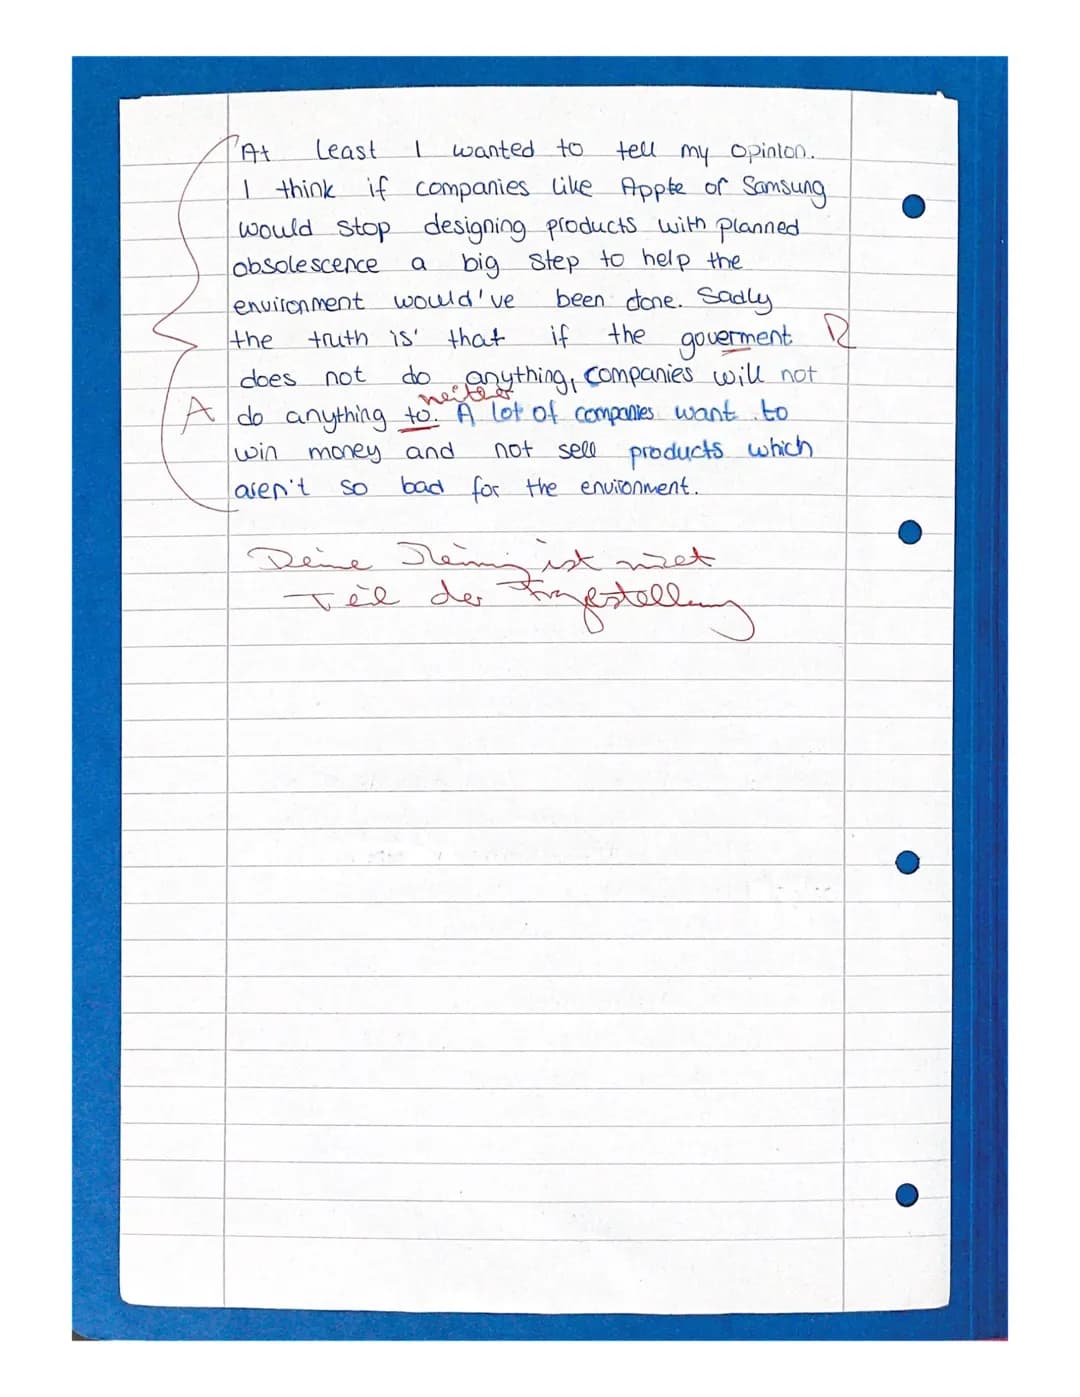 At Least I wanted to tell my opinion.
I think if companies like Apple or Samsung
would stop designing products with planned
obsolescence a big step to help the
environment would've been done. Sadly
the truth is that if the goverment R
does not do anything, companies will not
neither
A do anything to. A lot of companies want to
win money and not sell products which
aren't so bad for the environment.
Deine Meinung ist nicht
Teil der Fragestellung